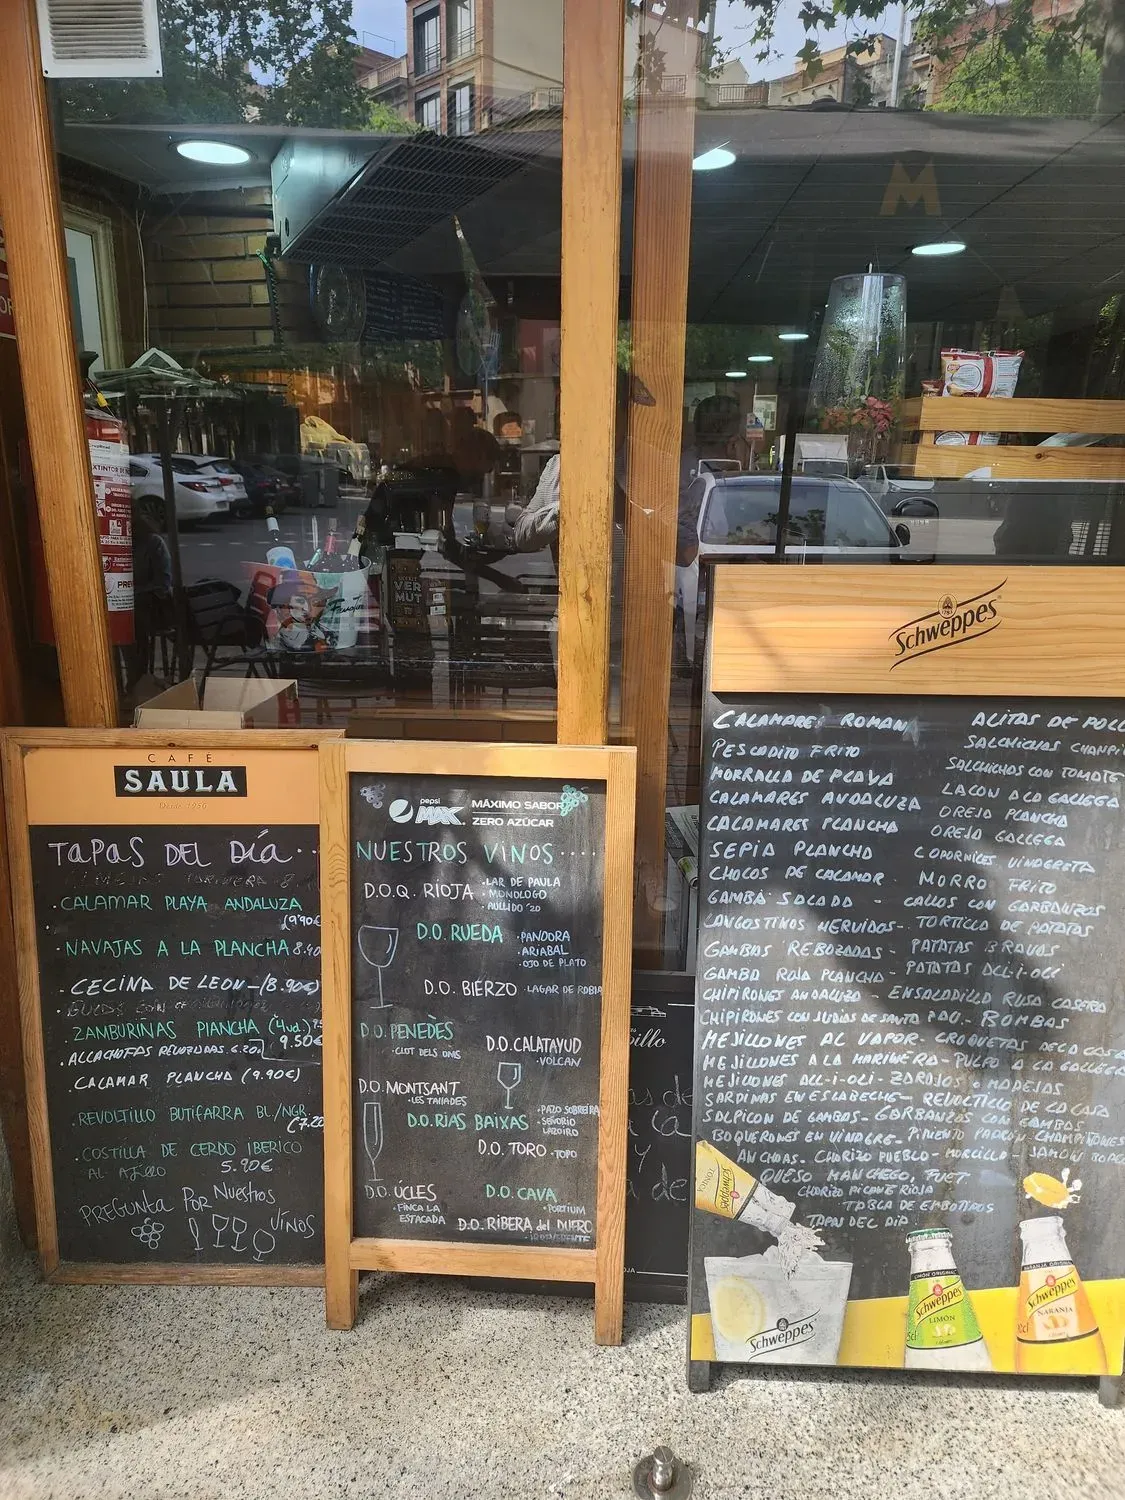 EXTINTOR
VER
MUT
M
CAFÉ
SAULA
Desde 1950
TAPAS DEL DÍA...
· CALAMAR PLAYA ANDALUZA
(9'90€
· NAVAJAS A LA PLANCHA 8.40
· CECINA DE LEON-(8.90€)
· ZAMBURINAS PLANCHA (4ud.)
9.50€
· ALLACHOFAS REVOZADAS 6.20€
· CALAMAR PLANCHA (9.90€)
· REVOLTILLO BUTIFARRA BL./NGR.
(7.20
· COSTILLA DE CERDO IBERICO
AL AJILLO 5.90€
PREGUNTA POR NUESTROS
VINOS
pepsi
MAX. MÁXIMO SABOR
ZERO AZÚCAR
NUESTROS VINOS....
D.O.Q. RIOJA · LAR DE PAULA
· MONOLOGO
· AULLIDO '20
D.O. RUEDA · PANDORA
· ARJABAL
· OJO DE PLATO
D.O. BIERZO · LAGAR DE ROBLA
D.O. PENEDÈS
· CLOT DELS OMS
D.O. CALATAYUD
· VOLCAN
D.O. MONTSANT
· LES TALLADES
D.O. RIAS BAIXAS · PAZO SOBREIRA
· SEÑORIO
LAZOIRO
D.O. TORO · TOPO
D.O. ÚCLES
· FINCA LA
ESTACADA
D.O. CAVA
· PORTIUM
D.O. RIBERA del DUERO
· IRREVERENTE
Schweppes
CALAMARES ROMANA
PESCADITO FRITO
MORRALLA DE PLAYA
CALAMARES ANDALUZA
CALAMARES PLANCHA
SEPIA PLANCHA
CHOCOS DE CALAMAR
GAMBA SALADA
LANGOSTINOS HERVIDOS-
GAMBAS REBOZADAS-
GAMBA ROJA PLANCHA-
ALITAS DE POLL
SALCHICHAS CHAMPI
SALCHICHAS CON TOMATE
LACON A LA GALLEGA
OREJA PLANCHA
OREJA GALLEGA
CODORNICES VINAGRETA
MORRO FRITO
CALLOS CON GARBANZOS
TORTILLA DE PATATAS
PATATAS BRAVAS
PATATAS ALL-I-OLI
CHIPIRONES ANDALUZA - ENSALADILLA RUSA CASERA
CHIPIRONES CON JUDIAS DE SANTA PAU- BOMBAS
MEJILLONES AL VAPOR- CROQUETAS DE LA CASA
MEJILLONES A LA MARINERA- PULPO A LA GALLEGA
MEJILLONES ALL-I-OLI- ZARAJOS o MADEJAS
SARDINAS EN ESCABECHE- REVOLTILLO DE LA CASA
SALPICON DE GAMBAS- GARBANZOS CON GAMBAS
BOQUERONES EN VINAGRE- PIMIENTO PADRON- CHAMPIÑONES
ANCHOAS- CHORIZO PUEBLO- MORCILLO- JAMON
QUESO MANCHEGO, FUET
CHORIZO PICANTE RIOJA
TABLA DE EMBUTIDOS
TAPAS DEL DIA
TONICA
Schweppes
LIMÓN
Schweppes
NARANJA
Schweppes